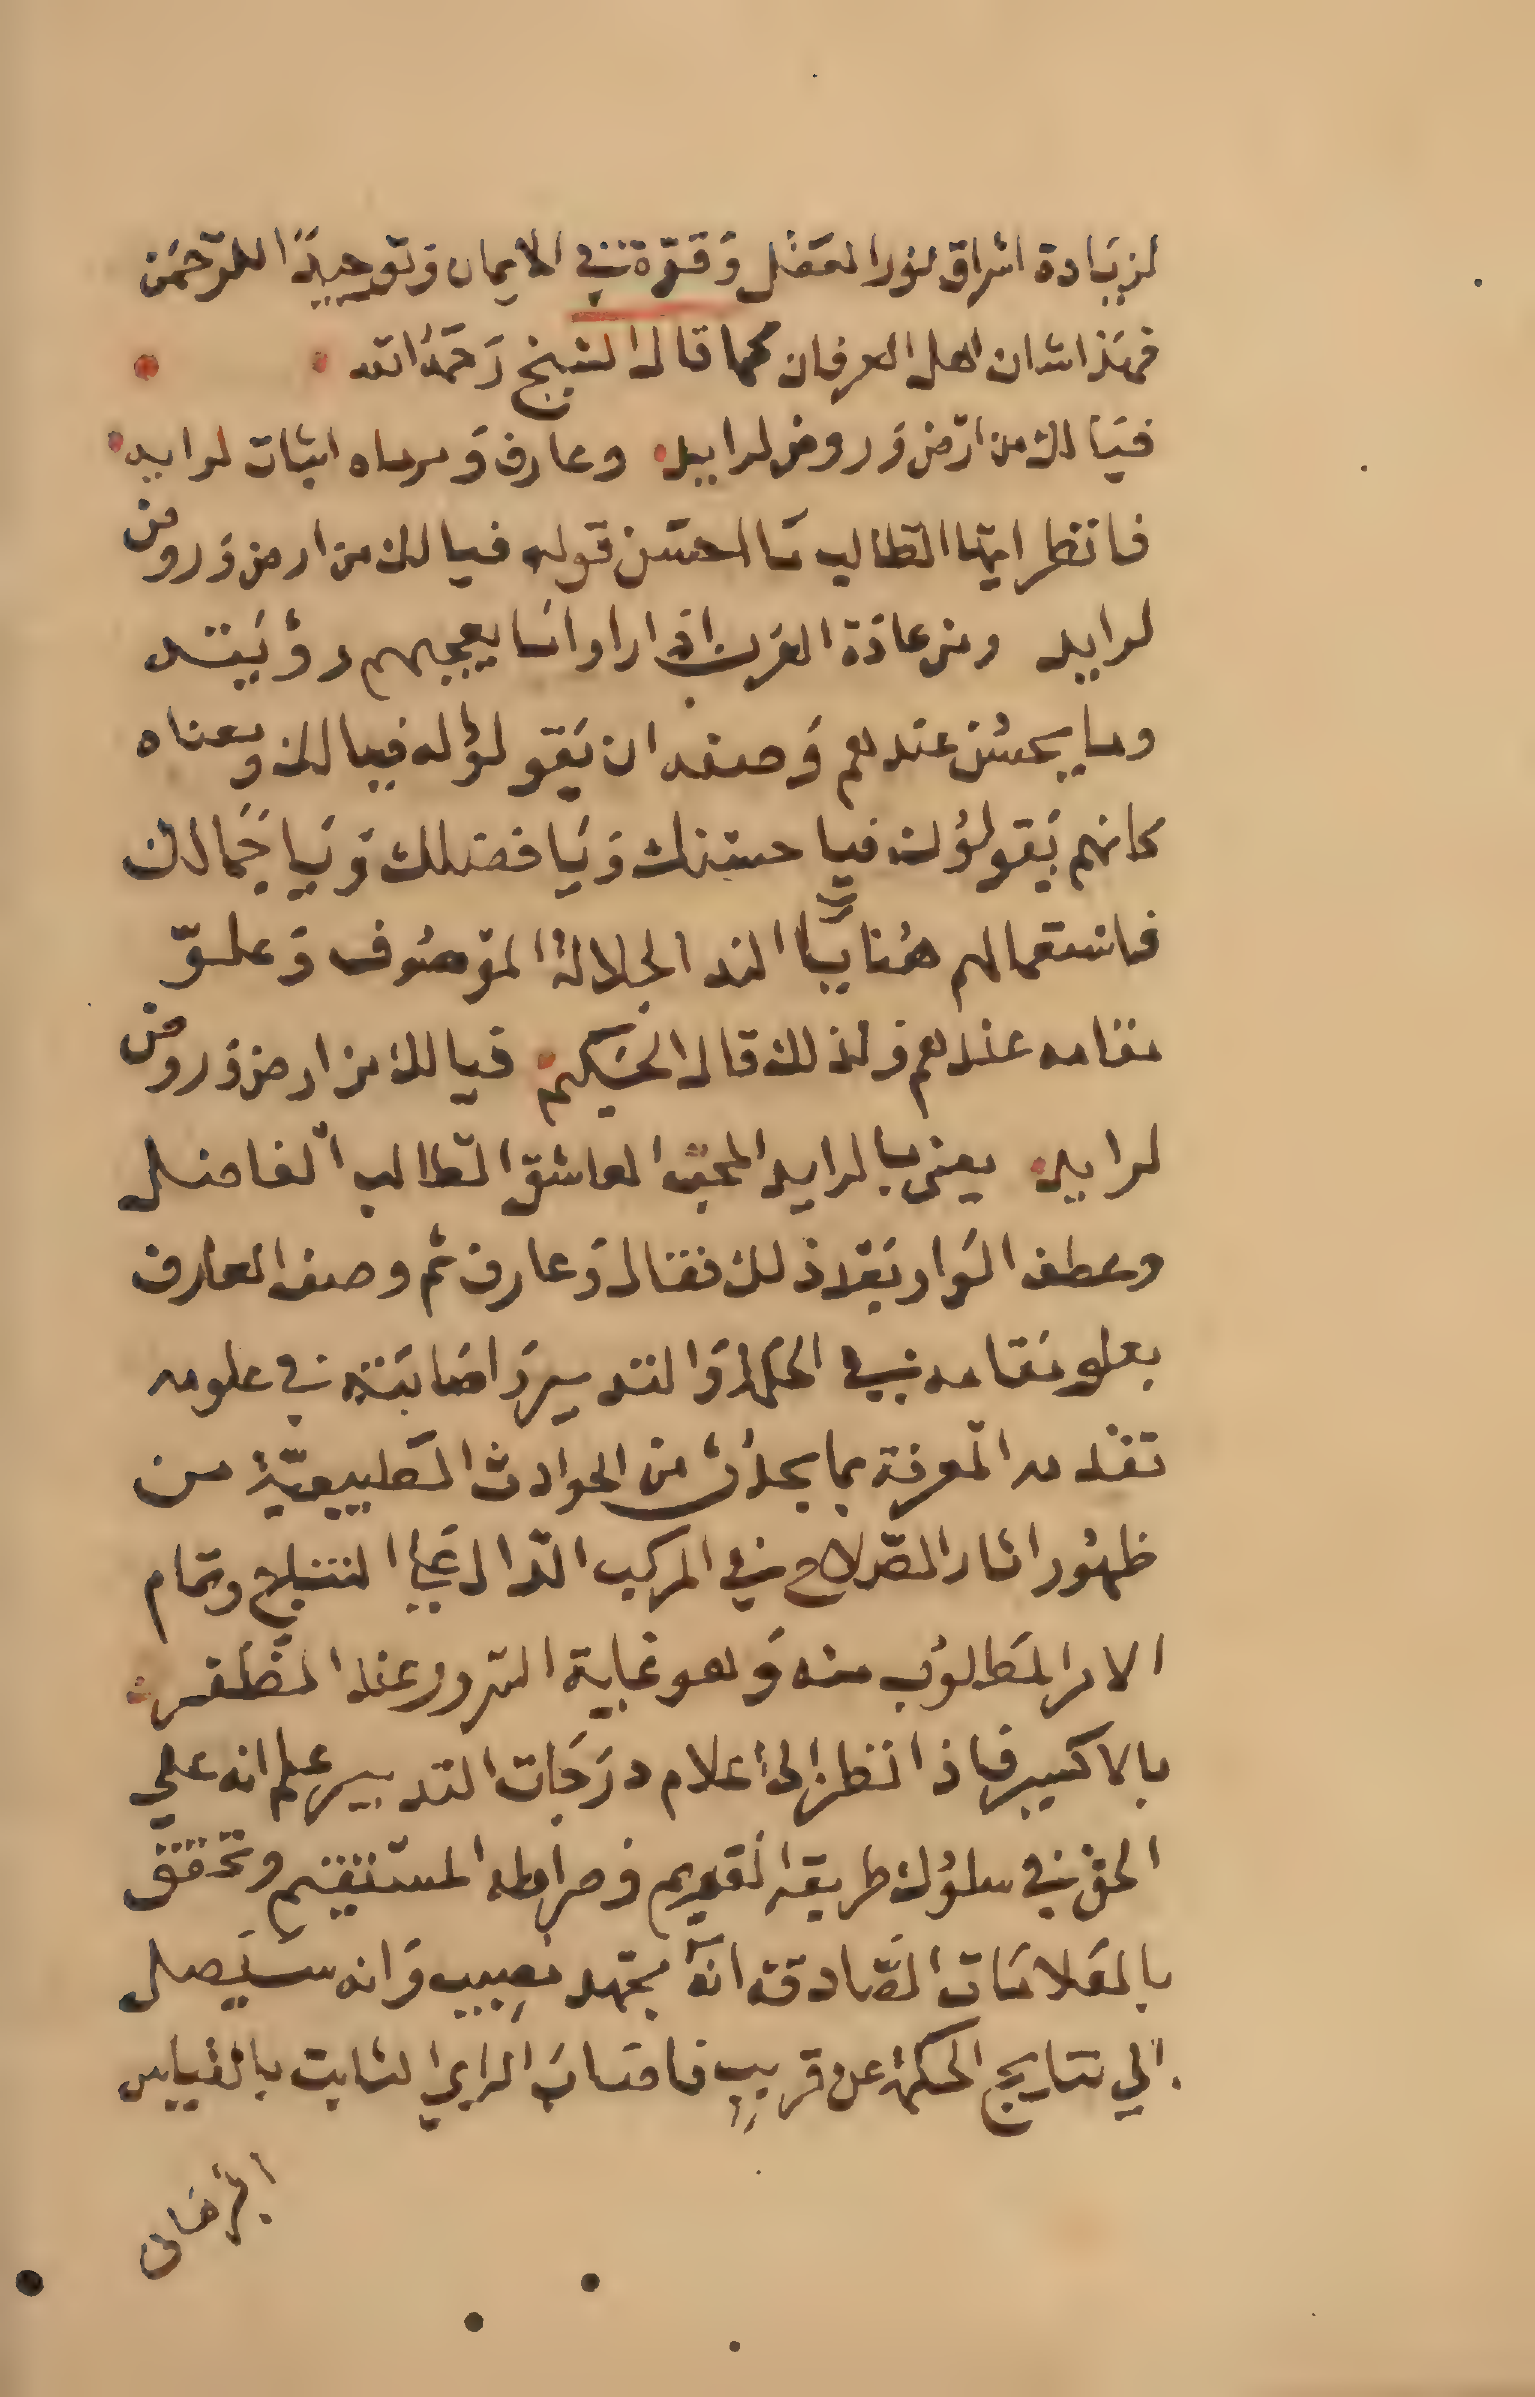 لزيادة اشراق نور العقل وَقوّة في الايمان وَتوحيدًا للرّحمَن
فهَذا شان اهل العرفان كما قال الشيخ رَحمَهُ الله
فيَا لك من ارْض وَروض لرايد وعارف وَمرماه اثبات لرايد
فانظر ايّها الطّالب مَا احسَن قوله فيا لك من ارض وَروض
لرايد ومن عادَة العَرب اذا راوا مَا يعجبهم رؤيَته
وما يحسُن عندهم وَصفه ان يَقولوُا له فيا لك ومعناه
كانهم يَقولوُن فيا حسنك وَيَا فضلك وَيَا جَمالك
فاستعمالهم هُنا يَا الندا لجلالة الموْصُوف وَعلوّ
مقامه عندهم فلذلك قال الحَكيم فيا لك من ارض وَروض
لرايد يعنى بالرايد المحبّ العاشق الطّالب الفاضل
وعطف الوَاو بَعْد ذلك فقال وَعارف ثم وصف العارف
بعلو مَقامه في الحكمة وَالتدبير وَاصَابَته في علومه
تقدمه المعرفة بما يحدُث من الحوادث الطّبيعيّة من
ظهُور اثار الصّلاح في المركب الدّال عَلي النتايج وتمام
الامر المَطلوُب منه وَهو غاية السّرور عند الظّفر
بالاكسير فاذا نَظر الى اعلام درَجَات التدبير علم انه علي
الحق في سلوُك طريقه القويم وَصراطه المستقيم وتحقق
بالعَلامَات الصَّادقة انّه مجتهد مصيب وَانه سيَصل
الي نتايج الحكمة عن قريب فاصَابَ الراي الثابت بالقياس
البرهَاني